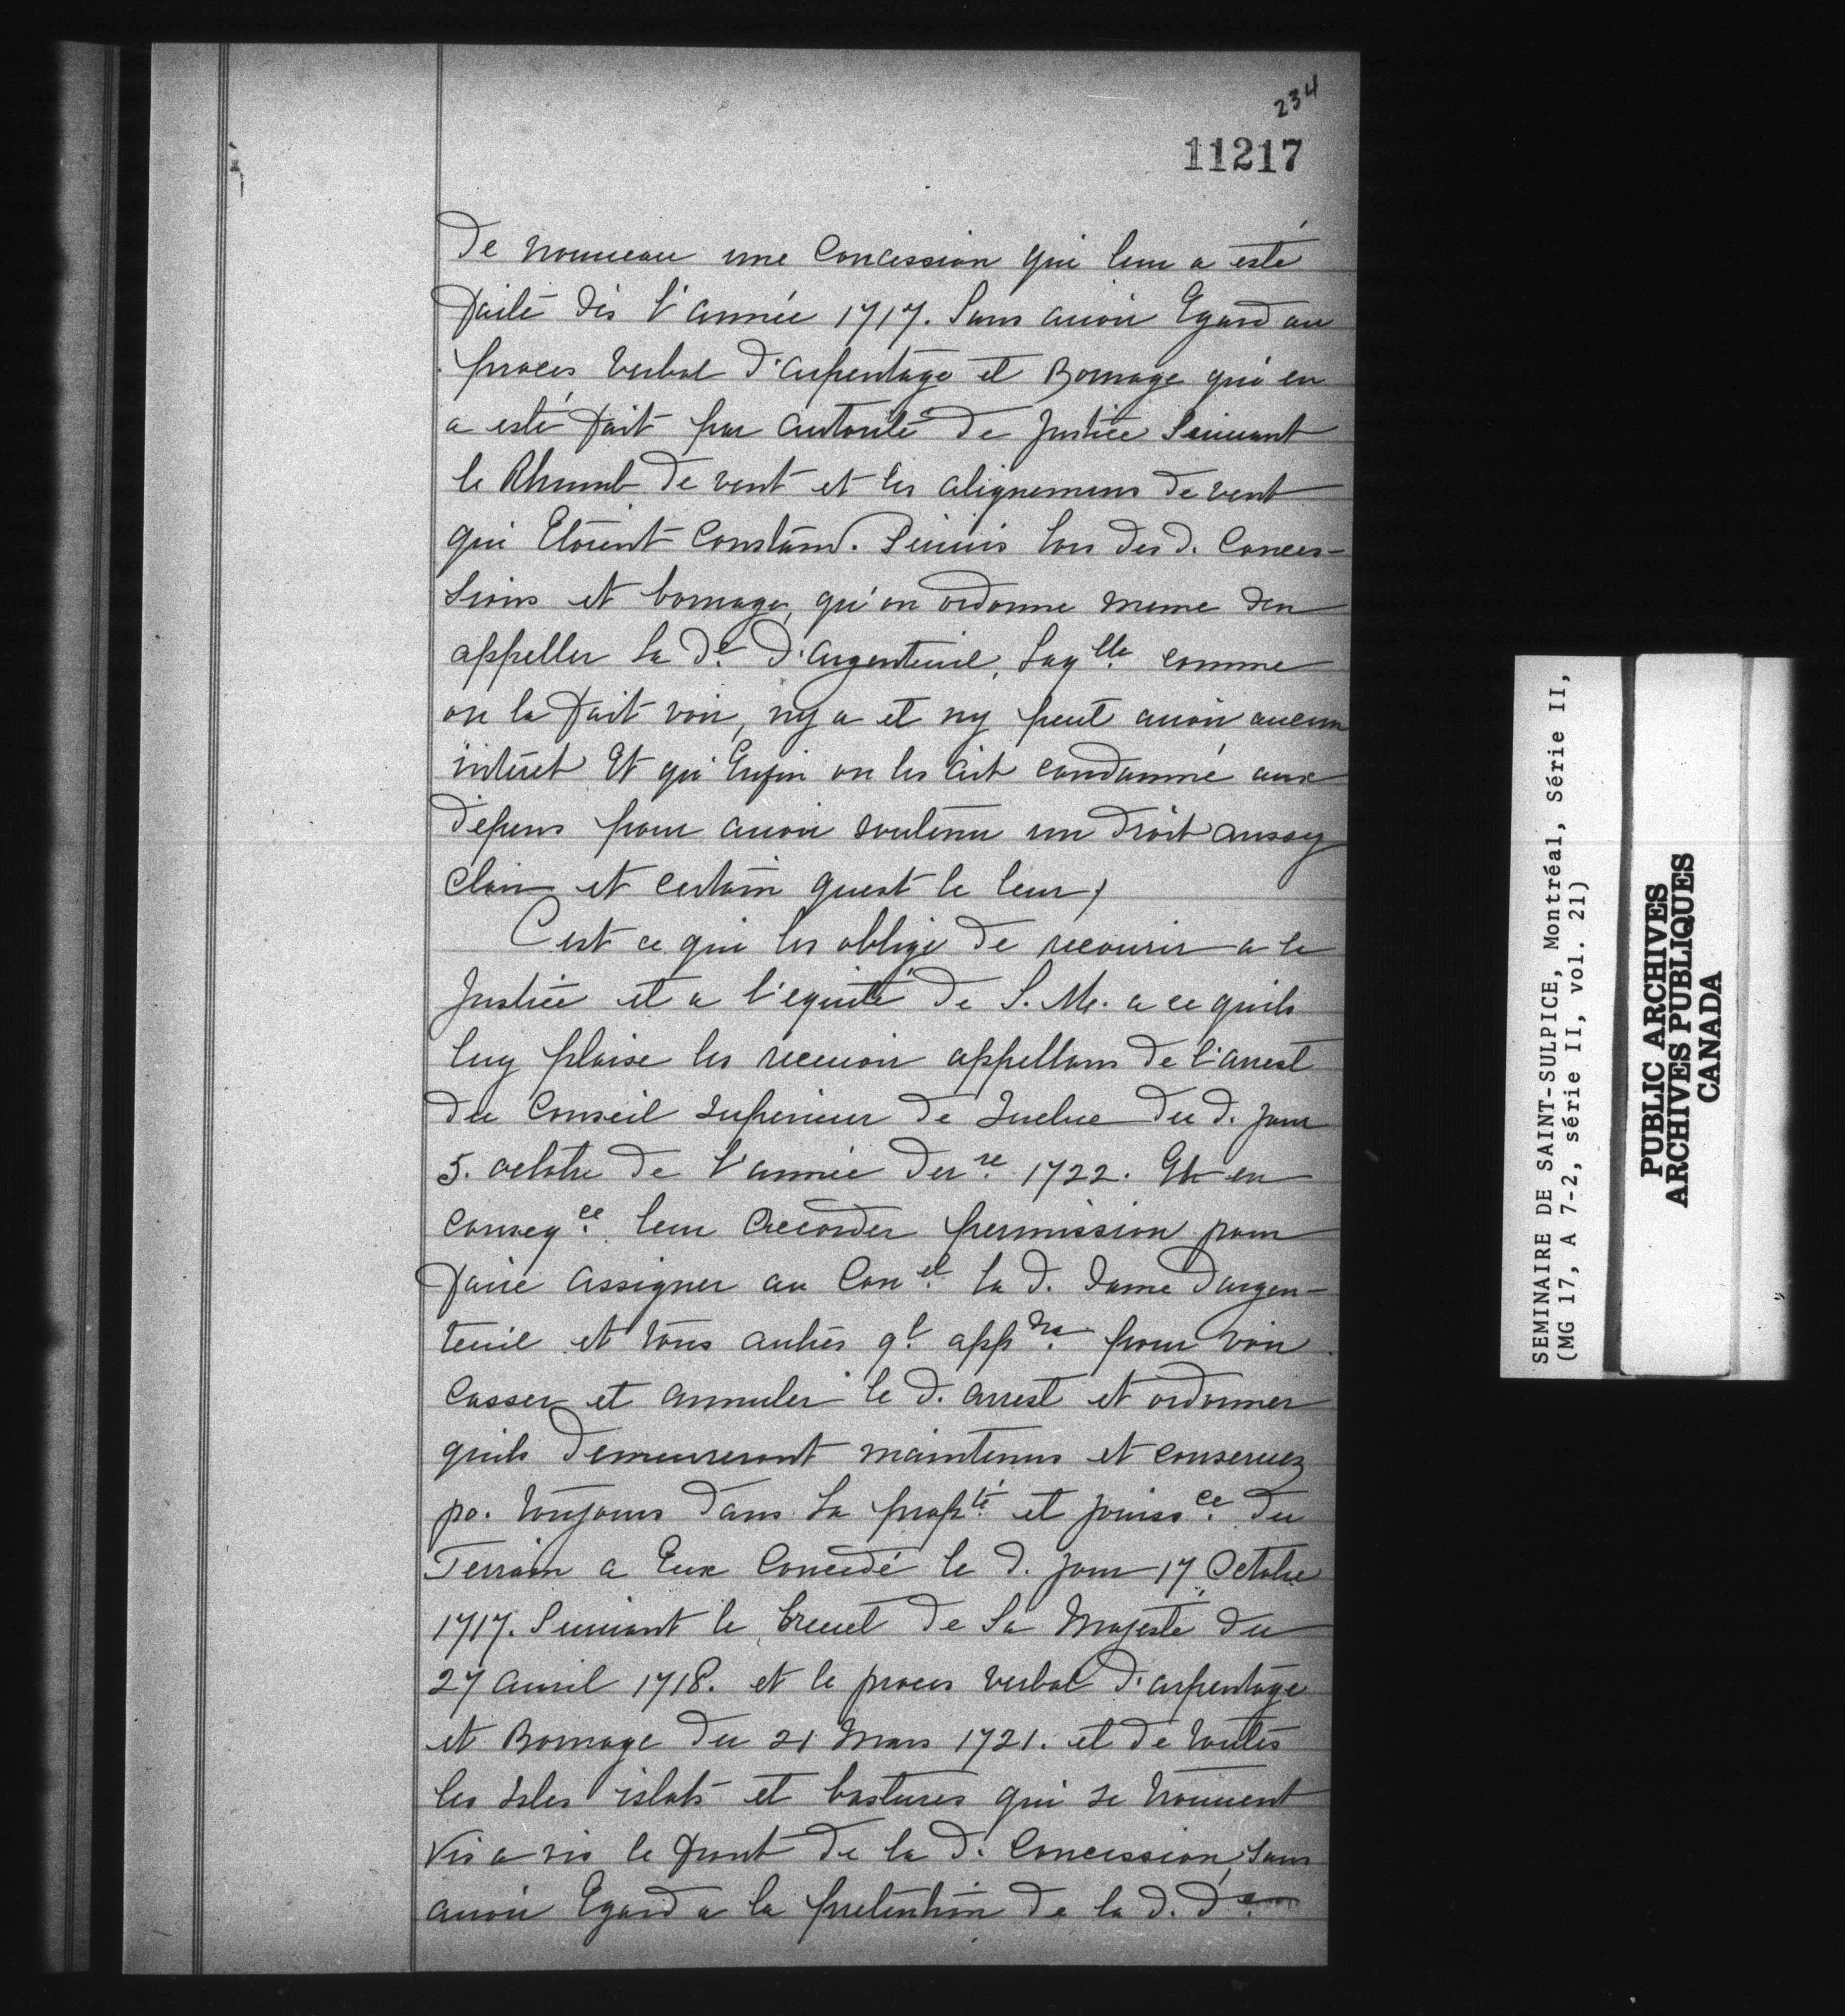 234
11217
de nouveau une Concession qui leur a esté
faite dès l'année 1717. Sans avoir Egard au
procès verbal d'arpentage et Bornage qui en
a esté fait par autorité de Justice Suivant
le Rhumb de vent et les alignemens de vent
qui Etoient Constam. Suivis lors des d. Conces-
sions et bornage, qu'on ordonne meme den
appeller la de. d'argenteuil, Laqlle. comme
on la fait voir, ny a et ny peut avoir aucun
intéret Et qu'Enfin on les ait condamné aux
dépens pour avoir soutenu un droit aussy
clair et certain quest le leur,
Cest ce qui les oblige de recourir a la
Justice et a l'équité de S. M. a ce quils
luy plaise les recevoir appellans de l'arrest
du Conseil Superieur de Quebec du d. jour
5. octobre de l'année derre. 1722. Et en
conseqce. leur accorder permission pour
faire assigner au Conel. la d. dame dargen-
teuil et tous autres ql. appra. pour voir
casser et annuler le d. arrest et ordonner
quils demeureront maintenus et conservez
po. toujours dans la propté. et jouissce. du
Terrain a Eux Concédé le d. jour 17 Octobre
1717. Suivant le brevet de Sa Majesté du
27 avril 1718. et le procès verbal d'arpentage
et Bornage du 21 Mars 1721. et de toutes
les Isles islots et bastures qui se trouvent
vis a vis le front de la d. Concession, Sans
avoir Egard a la prétention de la d. de.
SEMINAIRE DE SAINT-SULPICE, Montréal, Série II,
(MG 17, A 7-2, série II, vol. 21)
PUBLIC ARCHIVES
ARCHIVES PUBLIQUES
CANADA